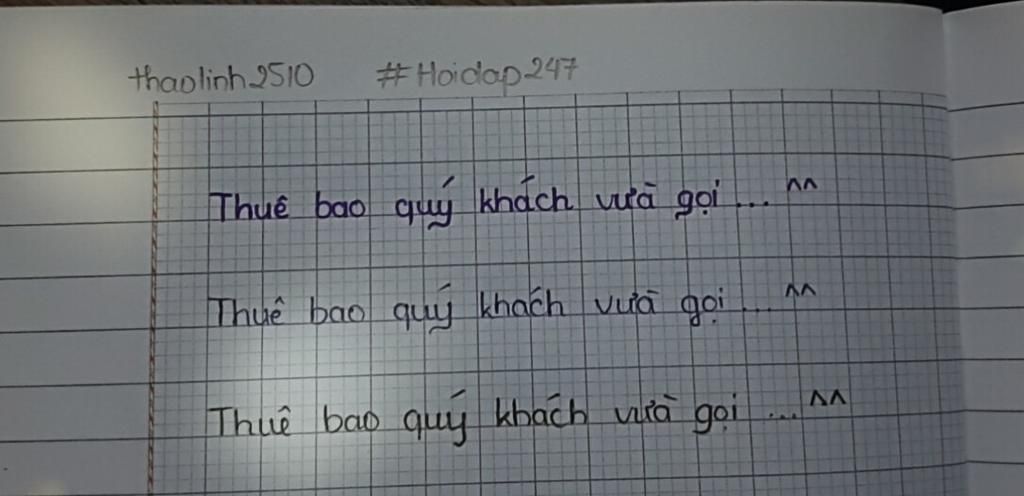 thaolinh2510 #Hoidap247
Thuê bao quý khách vừa gọi ... ^^
Thuê bao quý khách vừa gọi ... ^^
Thuê bao quý khách vừa gọi ... ^^